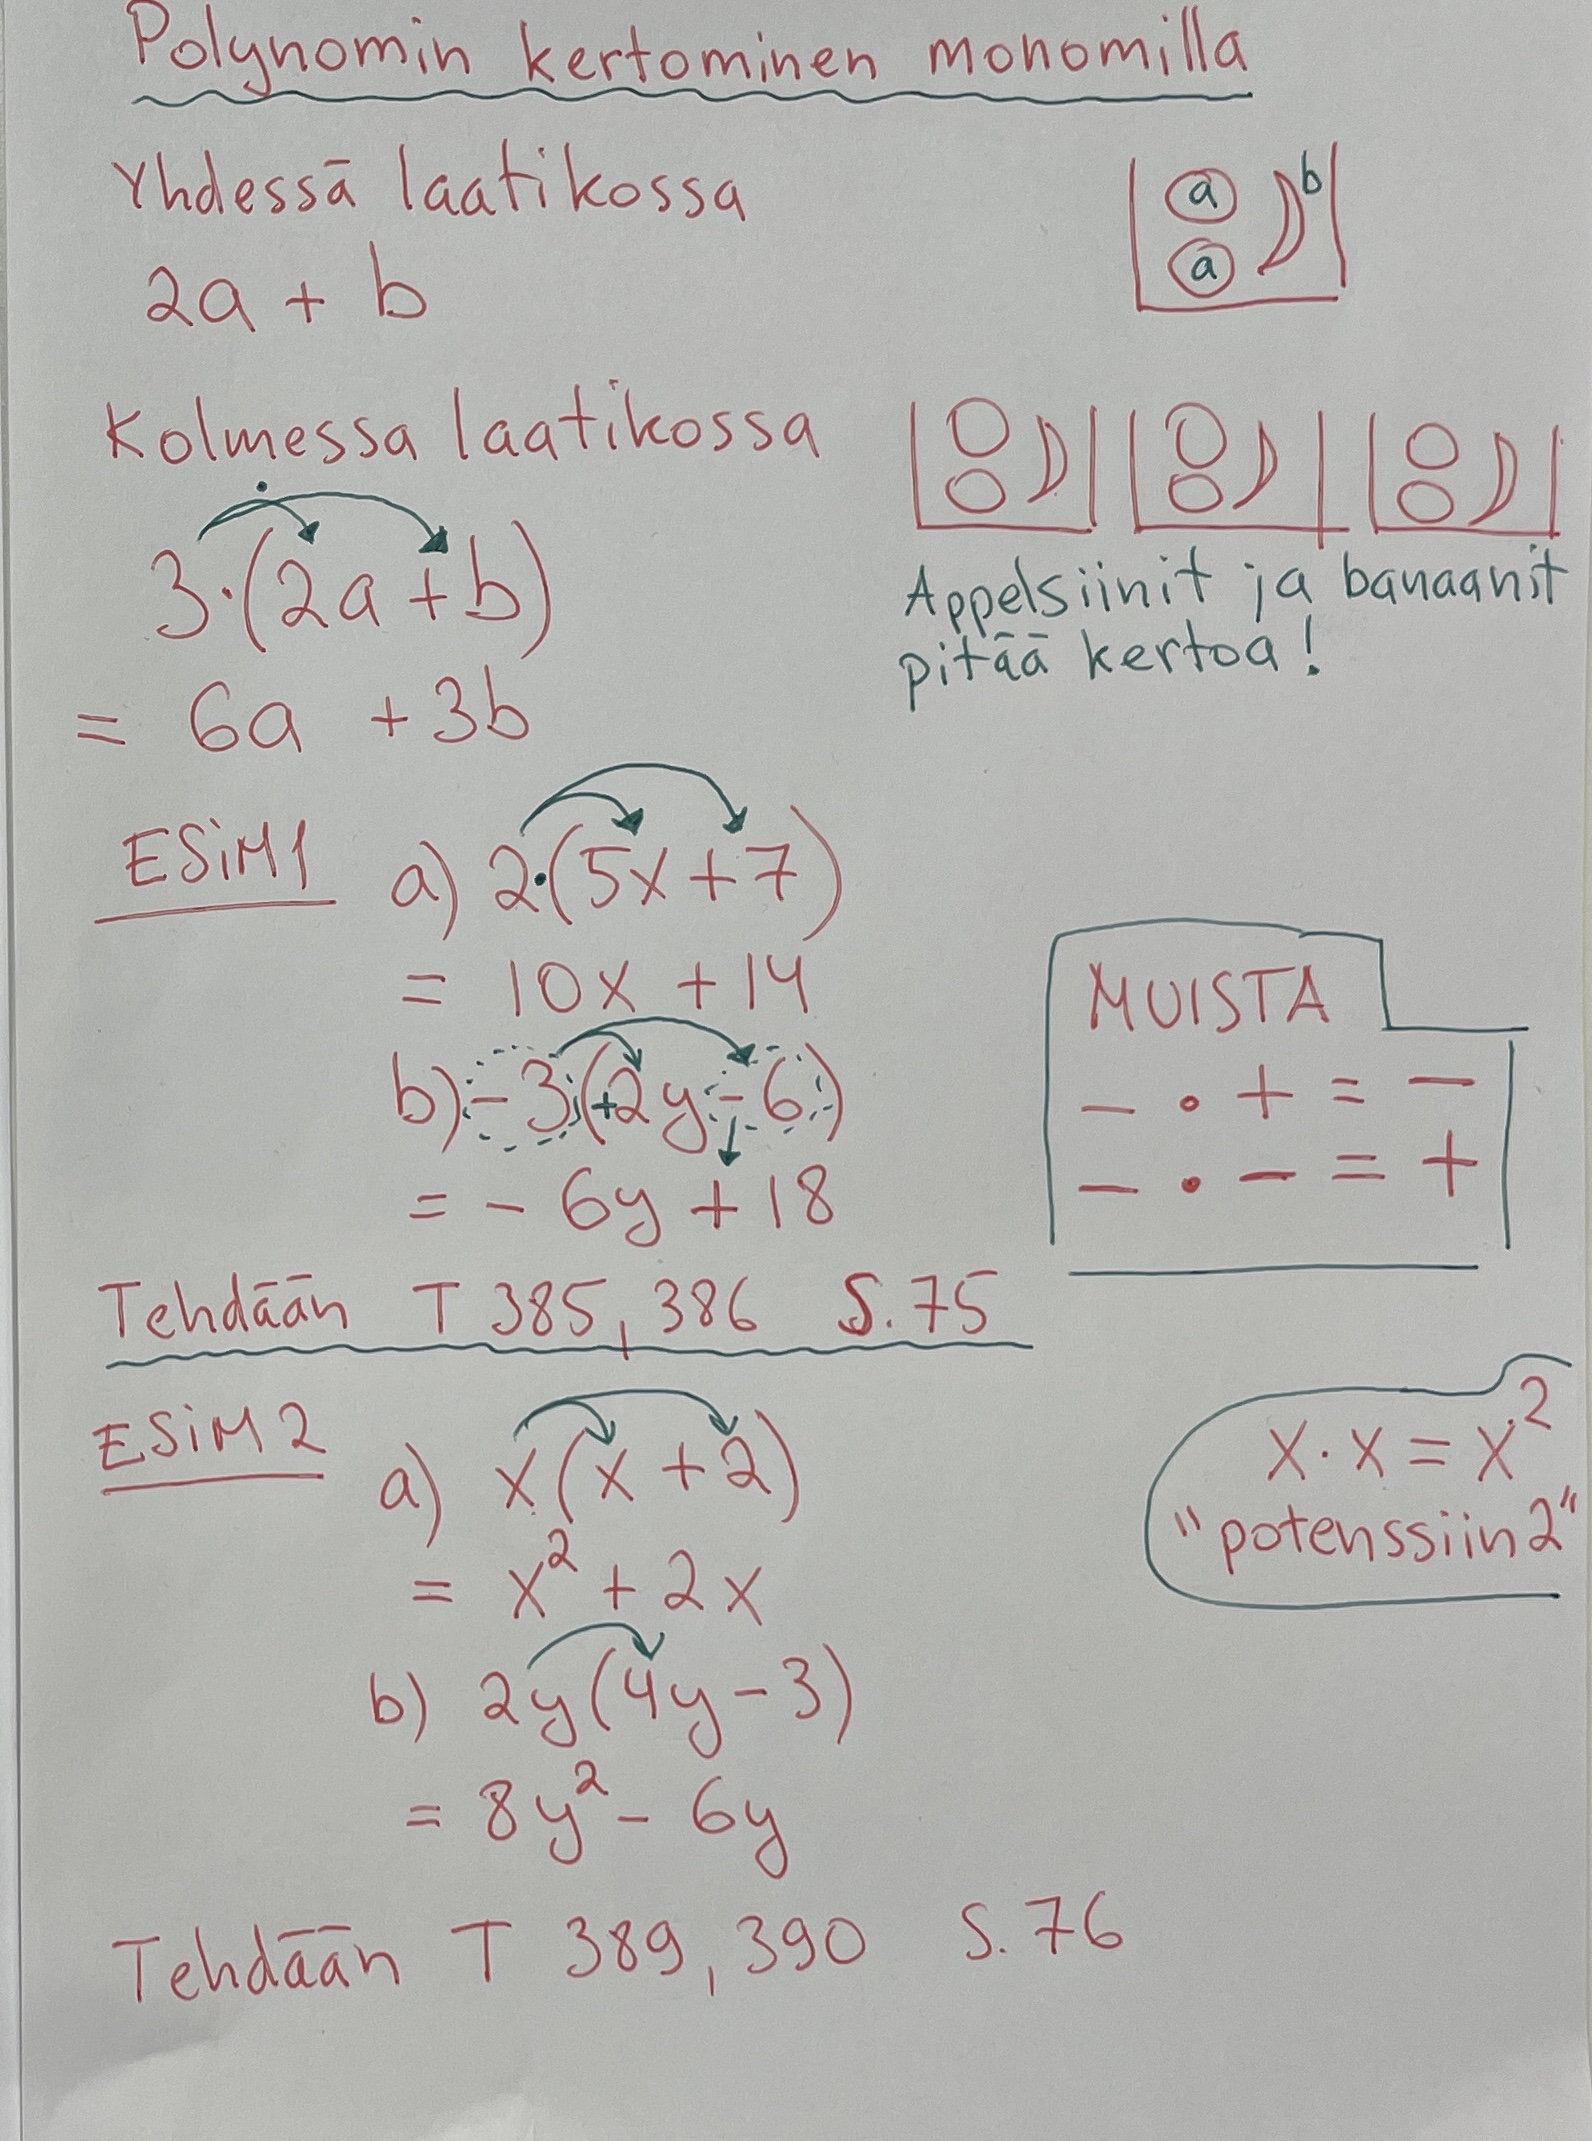 Polynomin kertominen monomilla
Yhdessä laatikossa
2a + b
a
a
b
Kolmessa laatikossa
3·(2a + b)
= 6a + 3b
Appelsiinit ja banaanit
pitää kertoa!
ESIM1
a) 2·(5x + 7)
= 10x + 14
b) -3(+2y - 6)
= - 6y + 18
MUISTA
- · + = -
- · - = +
Tehdään T 385, 386 S. 75
ESIM 2
a) x(x + 2)
= x² + 2x
x · x = x²
"potenssiin 2"
b) 2y(4y - 3)
= 8y² - 6y
Tehdään T 389, 390 S. 76